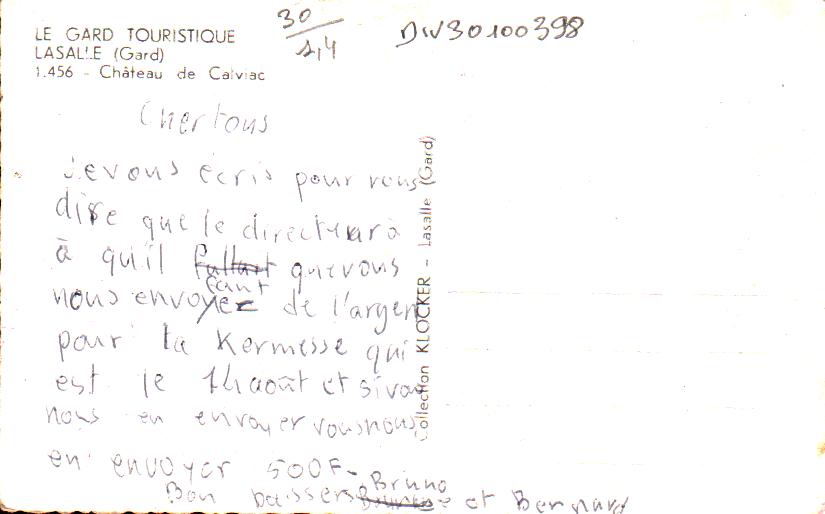 LE GARD TOURISTIQUE
LASALLE (Gard)
1.456 - Château de Calviac
30
1,4
DW30100398
Chertous
Jevous écris pour vous
dire que le directeur à
à qu'il quevous
faut
nous envoyez de l'argen
pour la Kermesse qui
est le 14 août et si vou
nous en envoyer vousnous
en envoyer 500F-
Bon baissers Bruno
et Bernard
Collection KLOCKER - Lasalle (Gard)